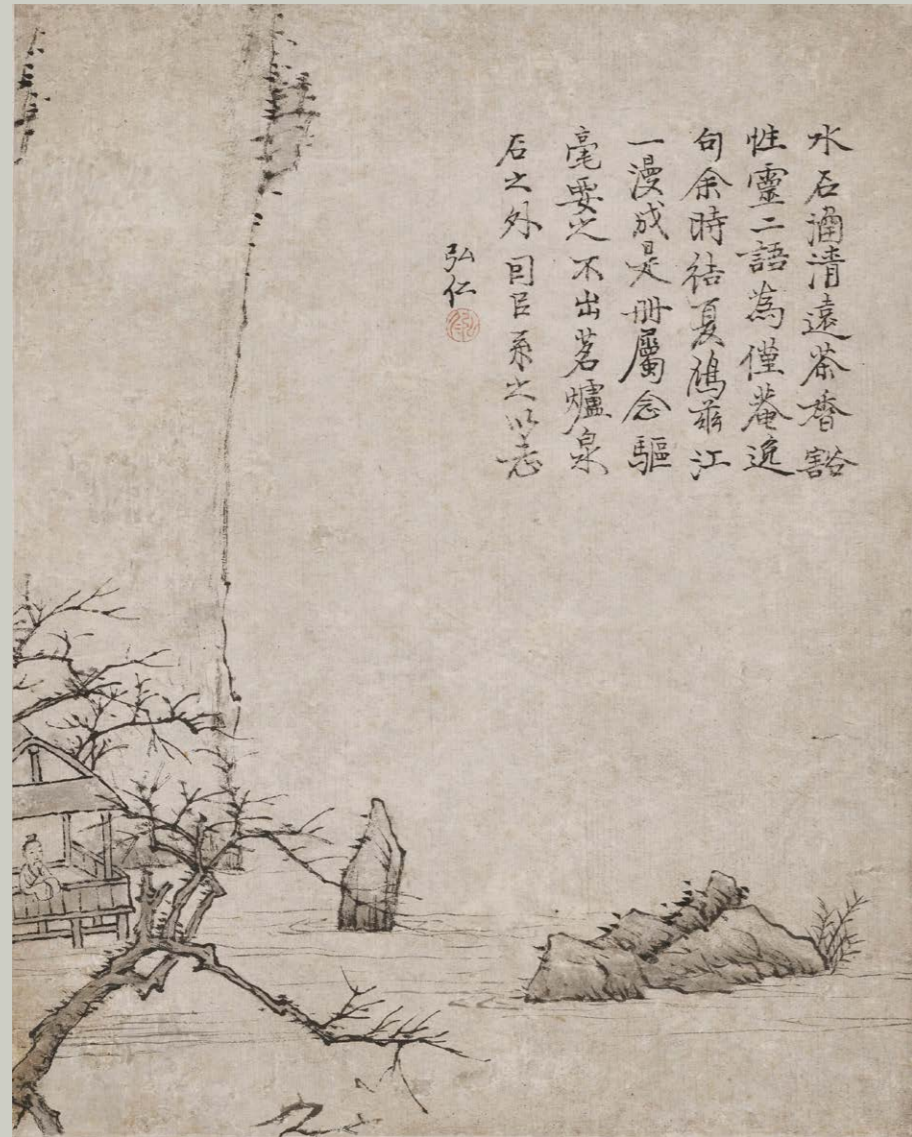 水石涵清遠茶香豁
性靈二語為僅菴逸
句余時結夏鳩茲江
一漫成是冊屬念驅
毫要之不出茗爐泉
石之外因呂系之以志
弘仁